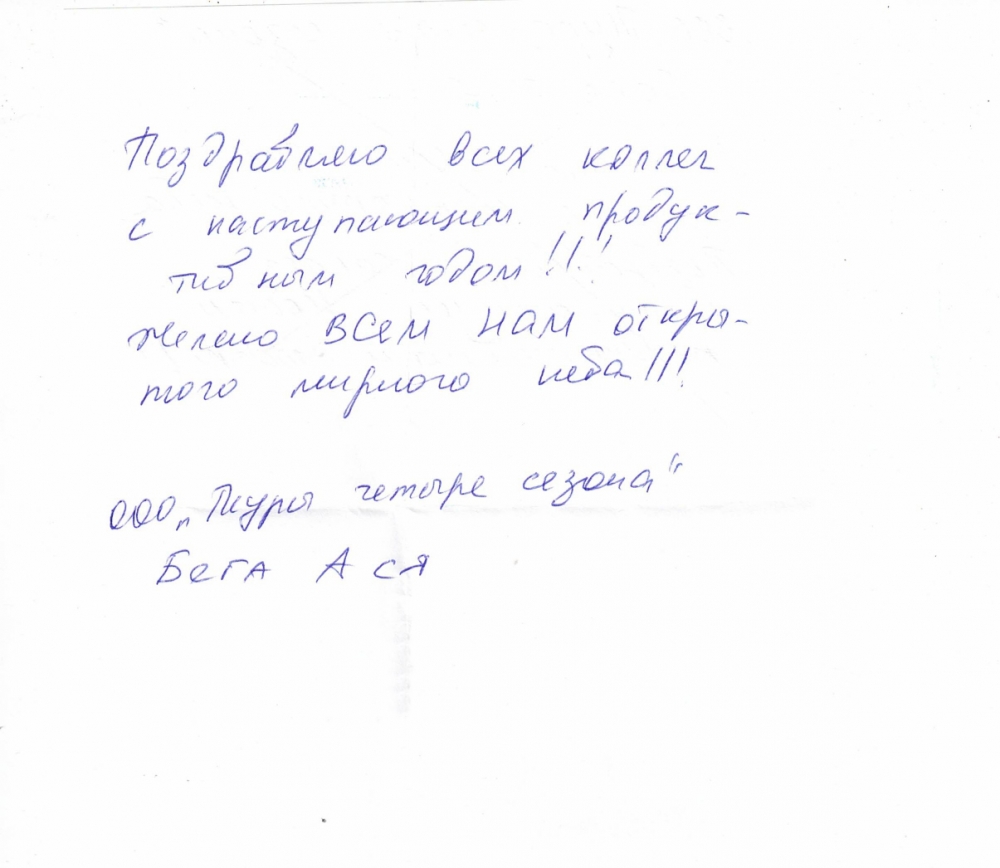 Поздравляю всех коллег
с наступающим продук-
тивным годом!!!
Желаю ВСЕМ НАМ откры-
того мирного неба!!!
ООО „Туры четыре сезона"
Бега Ася